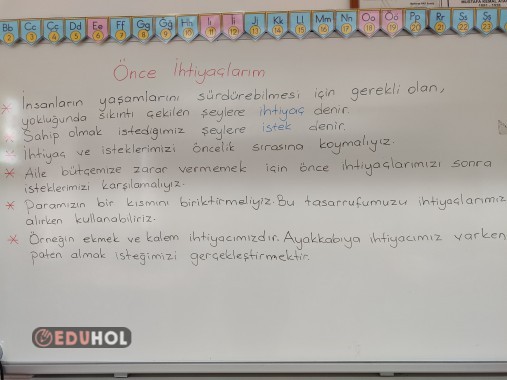 Bb Cc Çç Dd Ee Ff Gg Ğğ Hh Iı İi Jj Kk Ll Mm Nn Oo Öö Pp Rr Ss Şş
2 3 4 5 6 7 8 9 10 11 12 13 14 15 16 17 18 19 20 21 22 23
Önce İhtiyaçlarım
* İnsanların yaşamlarını sürdürebilmesi için gerekli olan,
yokluğunda sıkıntı çekilen şeylere ihtiyaç denir.
Sahip olmak istediğimiz şeylere istek denir.
İhtiyaç ve isteklerimizi öncelik sırasına koymalıyız.
* Aile bütçemize zarar vermemek için önce ihtiyaçlarımızı sonra
isteklerimizi karşılamalıyız.
* Paramızın bir kısmını biriktirmeliyiz. Bu tasarrufumuzu ihtiyaçlarımız
alırken kullanabiliriz.
* Örneğin ekmek ve kalem ihtiyacımızdır. Ayakkabıya ihtiyacımız varken
paten almak isteğimizi gerçekleştirmektir.
EDUHOL